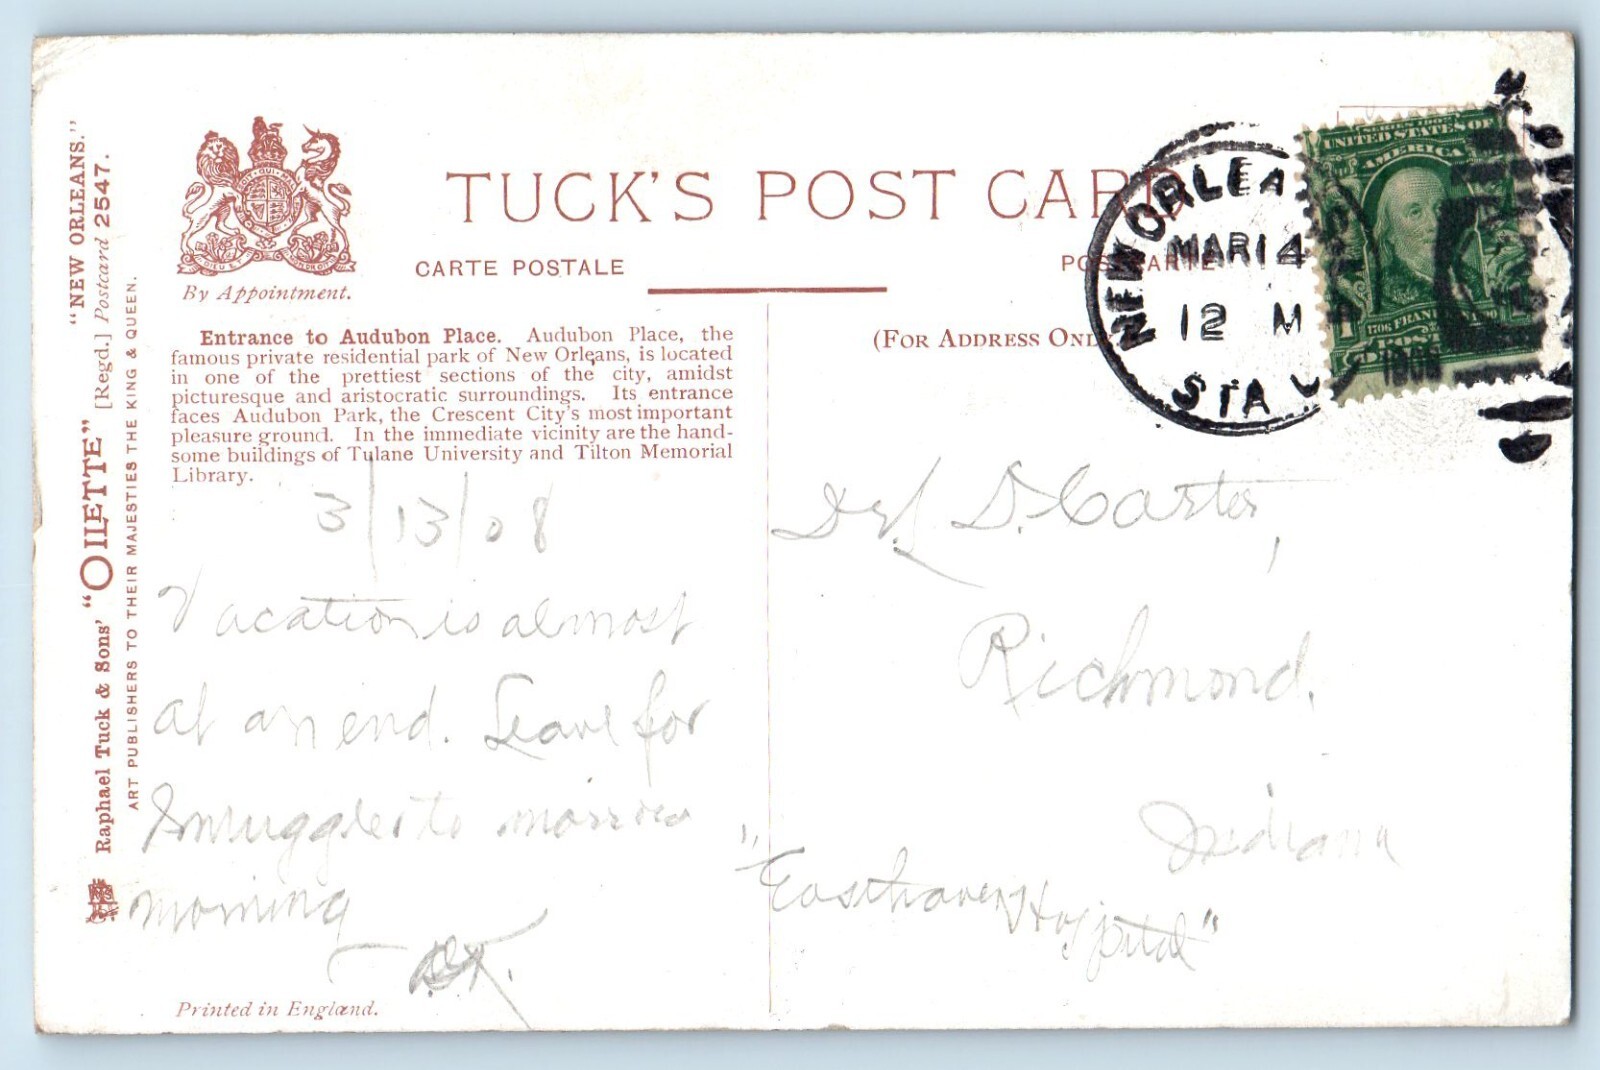 "NEW ORLEANS."
Raphael Tuck & Sons' "OILETTE" [Regd.] Postcard 2547.
ART PUBLISHERS TO THEIR MAJESTIES THE KING & QUEEN.
By Appointment.
TUCK'S POST CARD
CARTE POSTALE
POSTKARTE
(FOR ADDRESS ONL
Entrance to Audubon Place. Audubon Place, the
famous private residential park of New Orleans, is located
in one of the prettiest sections of the city, amidst
picturesque and aristocratic surroundings. Its entrance
faces Audubon Park, the Crescent City's most important
pleasure ground. In the immediate vicinity are the hand-
some buildings of Tulane University and Tilton Memorial
Library.
NEW ORLEA
MAR 14
12 M
STA
SERIES 1902
UNITED STATES OF
AMERICA
1706 FRANKLIN 1790
3/13/08
Vacation is almost
at an end. Leave for
Smuggler to morrow
morning
S. Carter,
Richmond.
Indiana
"Easthaven Hospital"
Printed in England.